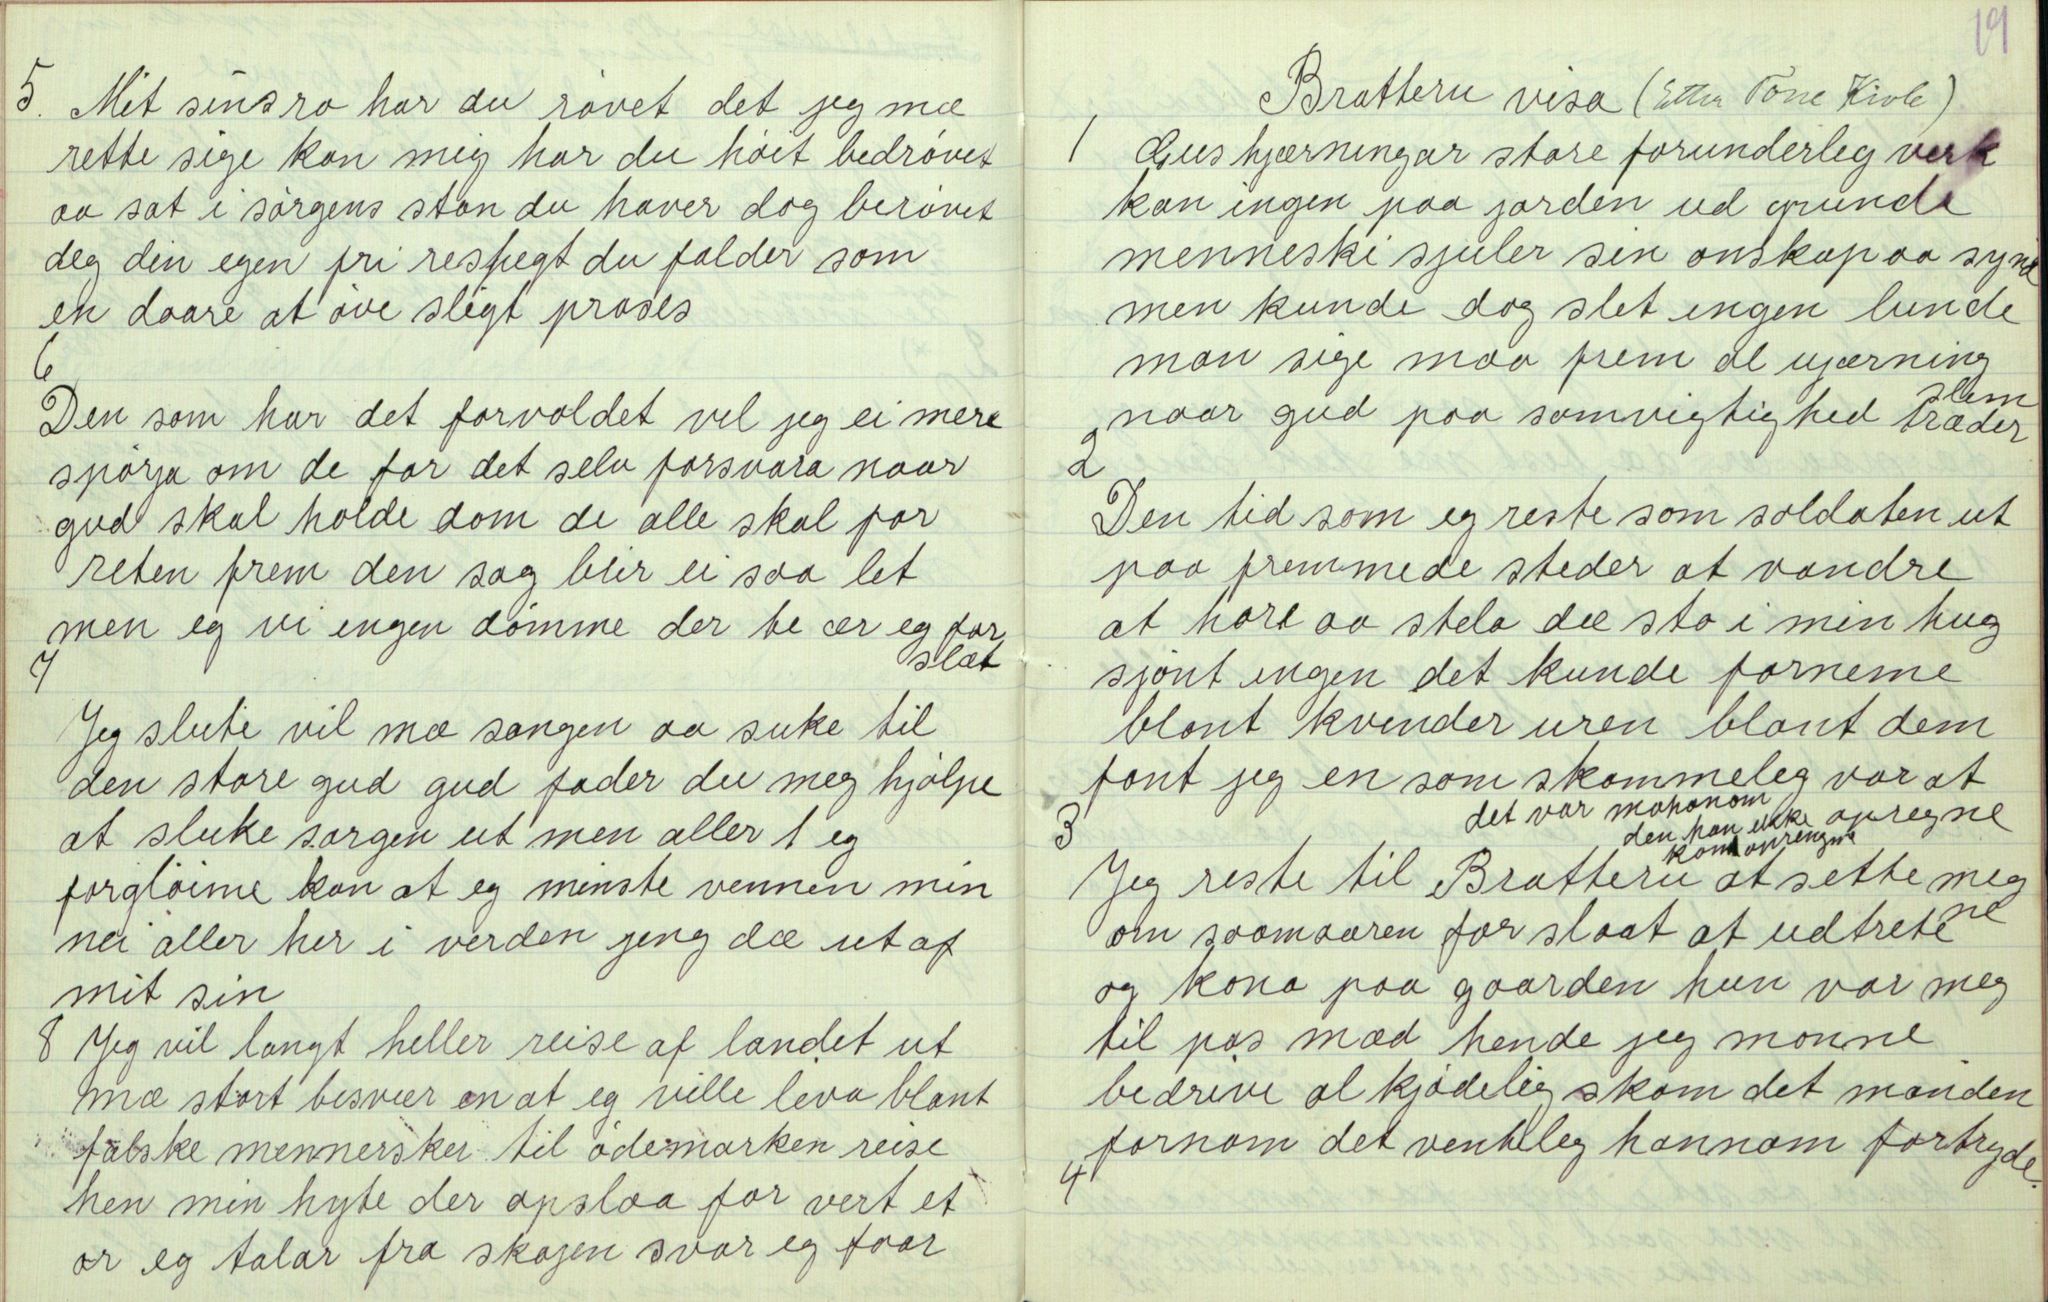 5. Mit sinsro har du røvet det jeg mæ
rette sige kan mig har du høit bedrøvet
aa sat i sørgens stan du haver dog berøvet
deg din egen fri respegt du falder som
en daare at øve sligt proses
6
Den som har det forvoldet vil jeg ei mere
spørja om de for det selv forsvara naar
gud skal holde dom de alle skal for
reten frem den sag blir ei saa let
men eg vi engen dømme der te ær eg for
slæt
7
Jeg slute vil mæ sangen aa suke til
den store gud gud fader du meg hjølpe
at sluke sorgen ut men aller 1 eg
forgløime kan at eg minste vennen min
nei aller her i verden jeng dæ ut af
mit sin
8 Jeg vil langt heller reise af landet ut
mæ stort besvær en at eg ville leva blant
falske mennersker til ødemarken reise
hen min hyte der opslaa for vert et
or eg talar fra skogen svar eg faar
19
Bratteru visa (Etter Tone Kivle)
1 Gus hjærningar store forunderleg verk
kan ingen paa jorden ud grunde
menneski sjuler sin onskap aa synd
men kunde dog slet engen lunde
man sige maa frem al ujærning
slem
naar gud paa samvigtighed træder
2
Den tid som eg reste som soldaten ut
paa fremmede steder at vandre
at hore aa stela dæ sto i min hug
sjønt engen det kunde forneme
blant kvinder uren blant dem
fant jeg en som skammeleg var at
det var mahanom opregne
den han ikke
kan oprengne
3
Jeg reste til Bratteru at sette meg
ne
om saamaaren for slaat at udtrete
og kona paa gaarden hun var meg
til pas mæd hende jeg monne
bedrive al kjødelig skam det manden
fornam det venteleg hannom fortryde.
4